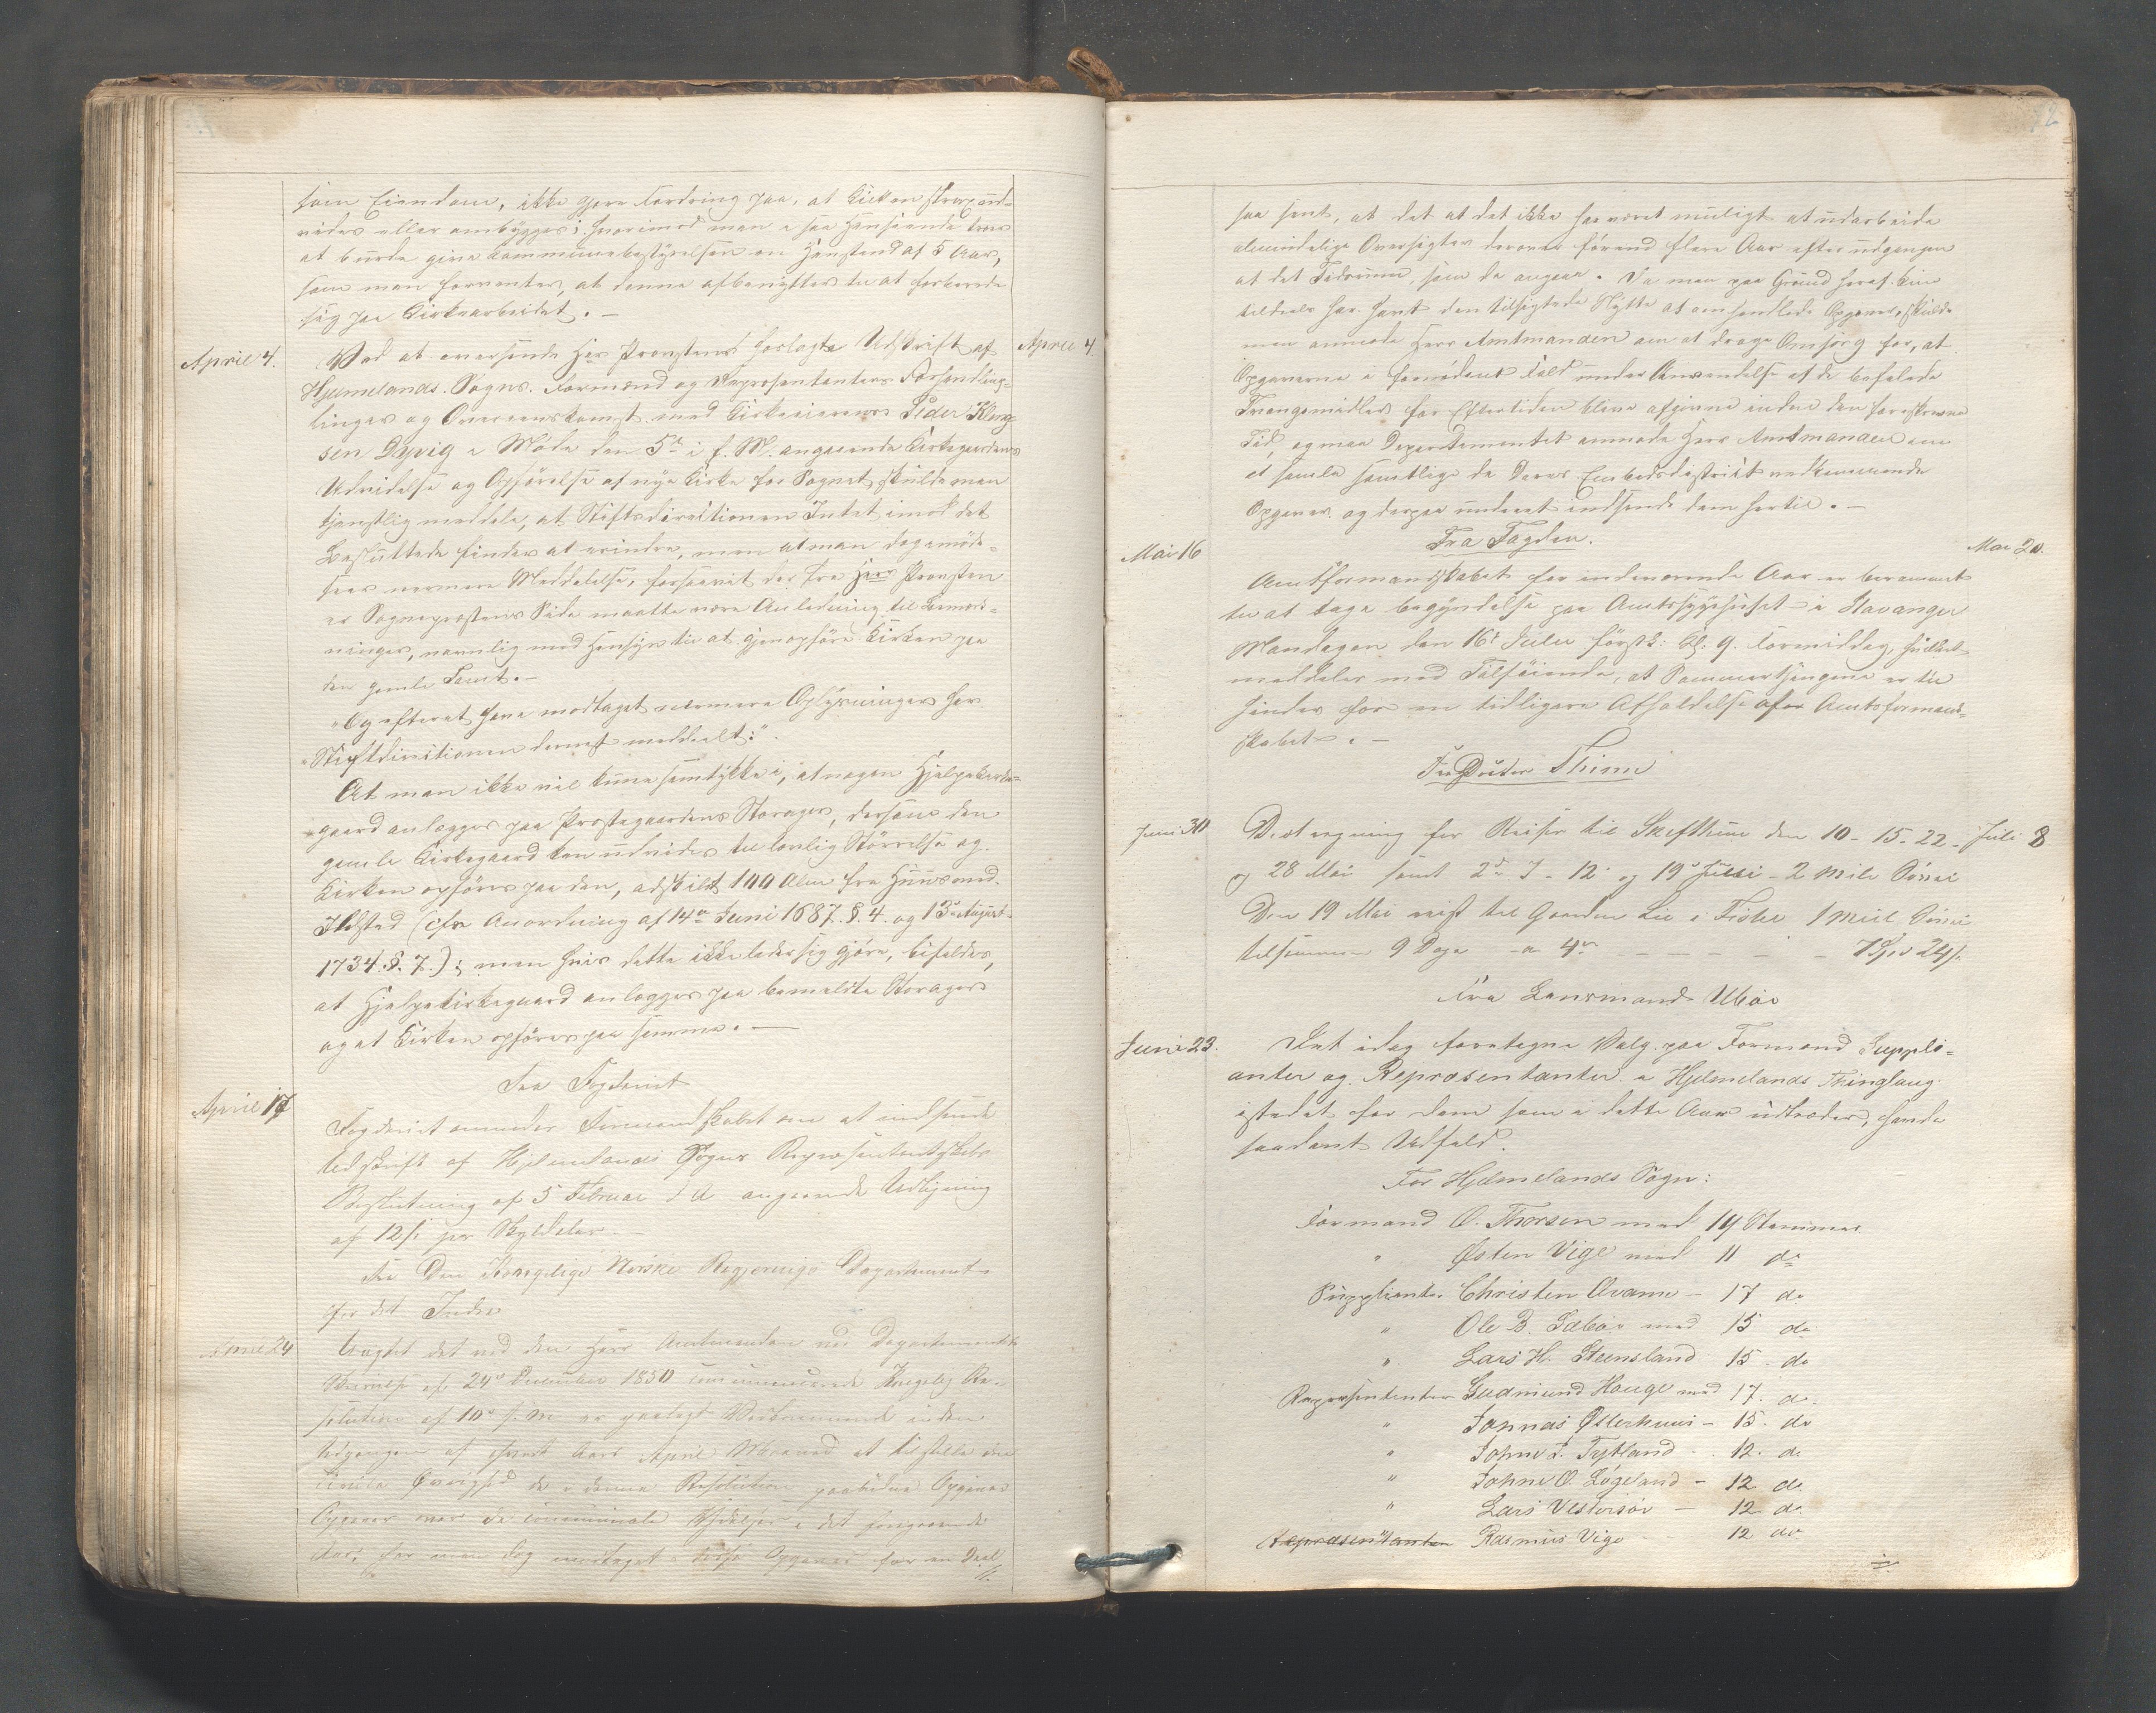 som Eiendom, ikke gjøre Fordring paa, at Kirken strax ud-
vides eller ombygges; hvorimod man i saa Henseende troer
at burde give Kommunebestyrelsen en Henstand af 5 Aar,
som man forventer, at denne afbenytter til at forberede
sig paa Kirkearbeidet. -
April 4. Ved at oversende Her Provstens Forlagte Udskrift af April 4.
Hjelmelands Sogns Formænd og Repræsentanters Forhandlin-
linger og Overeenskomst med Kirkeeieren Peder Klong-
sen Dyvig i Møde den 5te i f. M. angaaende Kirkegaardens
Udvidelse og Opførelse af nye Kirke for Sognet, skulde man
tjenstlig meddele, at Stiftsdirektionen Intet imod det
Besluttede finder at erindre, men at man dog imøde-
seer nærmere Meddelelse, forsaavidt der fra Herr Provsten
er Sogneprestens Side maatte være Anledning til Bemærk-
ninger, navnlig med Hensyn til at gjenopføre Kirken paa
den gamle Tomt. -
"Og efterat have modtaget nærmere Oplysninger har
"Stiftdirektionen dernæst meddeelt:"
At man ikke vil kunne samtykke i, at nogen Hjelpekirke-
gaard anlægges paa Præstegaardens Storager, dersom den
gamle Kirkegaard kan udvides til lovlig Størrelse og
Kirken opføres paa den, adskilt 100 Alen fra Huus med
Ildsted (cfr Anordning af 14de Juni 1687. §. 4. og 13de August
1734. §. 7.); men hvis dette ikke lader sig gjøre, bifaldes,
at Hjelpekirkegaard anlægges paa bemeldte Storager
og at Kirken opføres paa samme. -
Fra Fogderiet
April 17 Fogderiet anmoder Formandskabet om at indsende
Udskrift af Hjelmelands Sogns Repræsentantskabs
Beslutning af 5 Februar d. A. angaaende Udligning
af 12 s. pr Skylddaler -
Fra Den Kongelige Norske Regjerings Departement
for det Indre
April 24 Uagtet det ved den Herr Amtmanden ved Departementets
Skrivelse af 24de December 1850 communicerede Kongelig Re-
solution af 10de s. M. er paalagt Vedkommende inden
Udgangen af hvert Aars April Maaned at tilstille den
civile Øvrighed de i denne Resolution paabudne Opgaver
Opgaver over de communale Udgifter i det foregaaende
Aar, har man dog modtaget disse Opgaver for en Deel
saa sent, at det at det ikke har været muligt at udarbeide
almindelige Oversigter derover førend flere Aar efter Udgangen
at det Tidsrum, som de angaae. Da man paa Grund heraf kun
tildeels har havt den tilsigtede Nytte af omhandlede Opgaver, skulde
man anmode Herr Amtmanden om at drage Omsorg for, at
Opgaverne i fornødent Fald under Anvendelse af de befalede
Tvangsmidler for Eftertiden blive afgivne inden den foreskrevne
Tid, og maa Departementet anmode Herr Amtmanden om
at samle samtlige de Deres Embedsdistrict vedkommende
Opgaver og derpaa underet indsende dem hertil. -
Fra Fogden.
Mai 16 Mai 20.
Amtsformandskabet for indeværende Aar er berammet
til at tage begyndelse paa Amtssygehuset i Stavanger
Mandagen den 16de Julii førstk: Kl. 9. Formiddag, hvilket
meddeles med Tilføiende, at Sommerthingene er til
Hinder for en tidligere Afholdelse af Amtsformand-
skabet. -
Fra Doctor Thime
Juni 30 Diætregning for Reiser til Skiftthun den 10-15-22- Juli 8
og 28 Mai samt 2de 7-12 og 19de Juni - 2 Mile Søvei
Den 19 Mai reist til Gaarden Lie i Fister 1 Miil Søvei
tilsammen 9 Dage a 4 - - - - - - 7 Spd 24 s.
Fra Lensmand Ulbøe
Juni 23. Det idag foretagne Valg paa Formænd Supple-
anter og Repræsentanter i Hjelmelands Thinglaug
istedet for dem som i dette Aar udtræder, havde
saadant Udfald.
For Hjelmelands Sogn:
Formænd O. Thorsen med 19 Stemmer
" Østen Vige med 11 do
Suppleanter Christen Qvame - 17 do
" Ole B. Sæbøe med 15 do
" Lars H. Steensland 15 do
Repræsentanter Gudmund Hauge med 17. do
" Jonas Østerhuus - 15. do
" Johne L. Tytland 12. do
" Johne O. Løgeland - 12 do
" Lars Vestersøe - 12 do
Repræsentanter Rasmus Vige 12 do